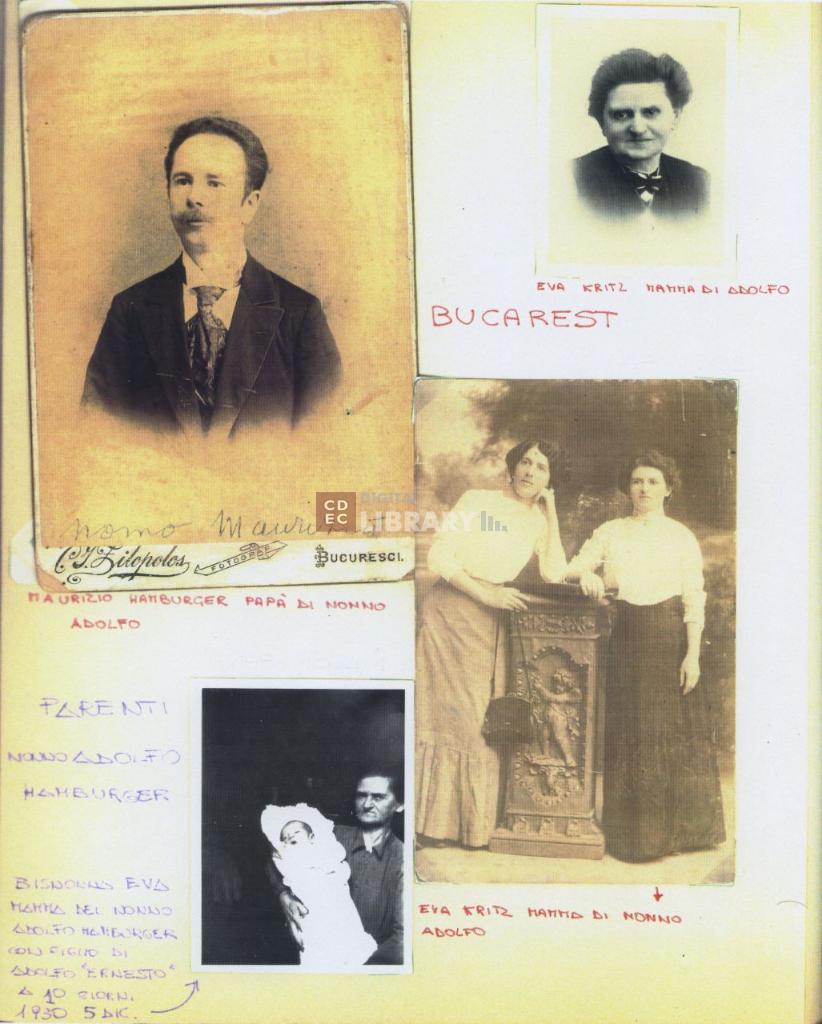 EVA KRITZ MAMMA DI ADOLFO
BUCAREST
nonno Maurizio
CD
EC
DIGITAL
LIBRARY
C. J. Zilopolos
FOTOGRAF
BUCURESCI.
MAURIZIO HAMBURGER PAPÀ DI NONNO
ADOLFO
PARENTI
NONNO ADOLFO
HAMBURGER
BISNONNA EVA
MAMMA DEL NONNO
ADOLFO HAMBURGER
CON FIGLIO DI
ADOLFO "ERNESTO"
A 10 GIORNI
1930 5 DIC.
EVA KRITZ MAMMA DI NONNO
ADOLFO